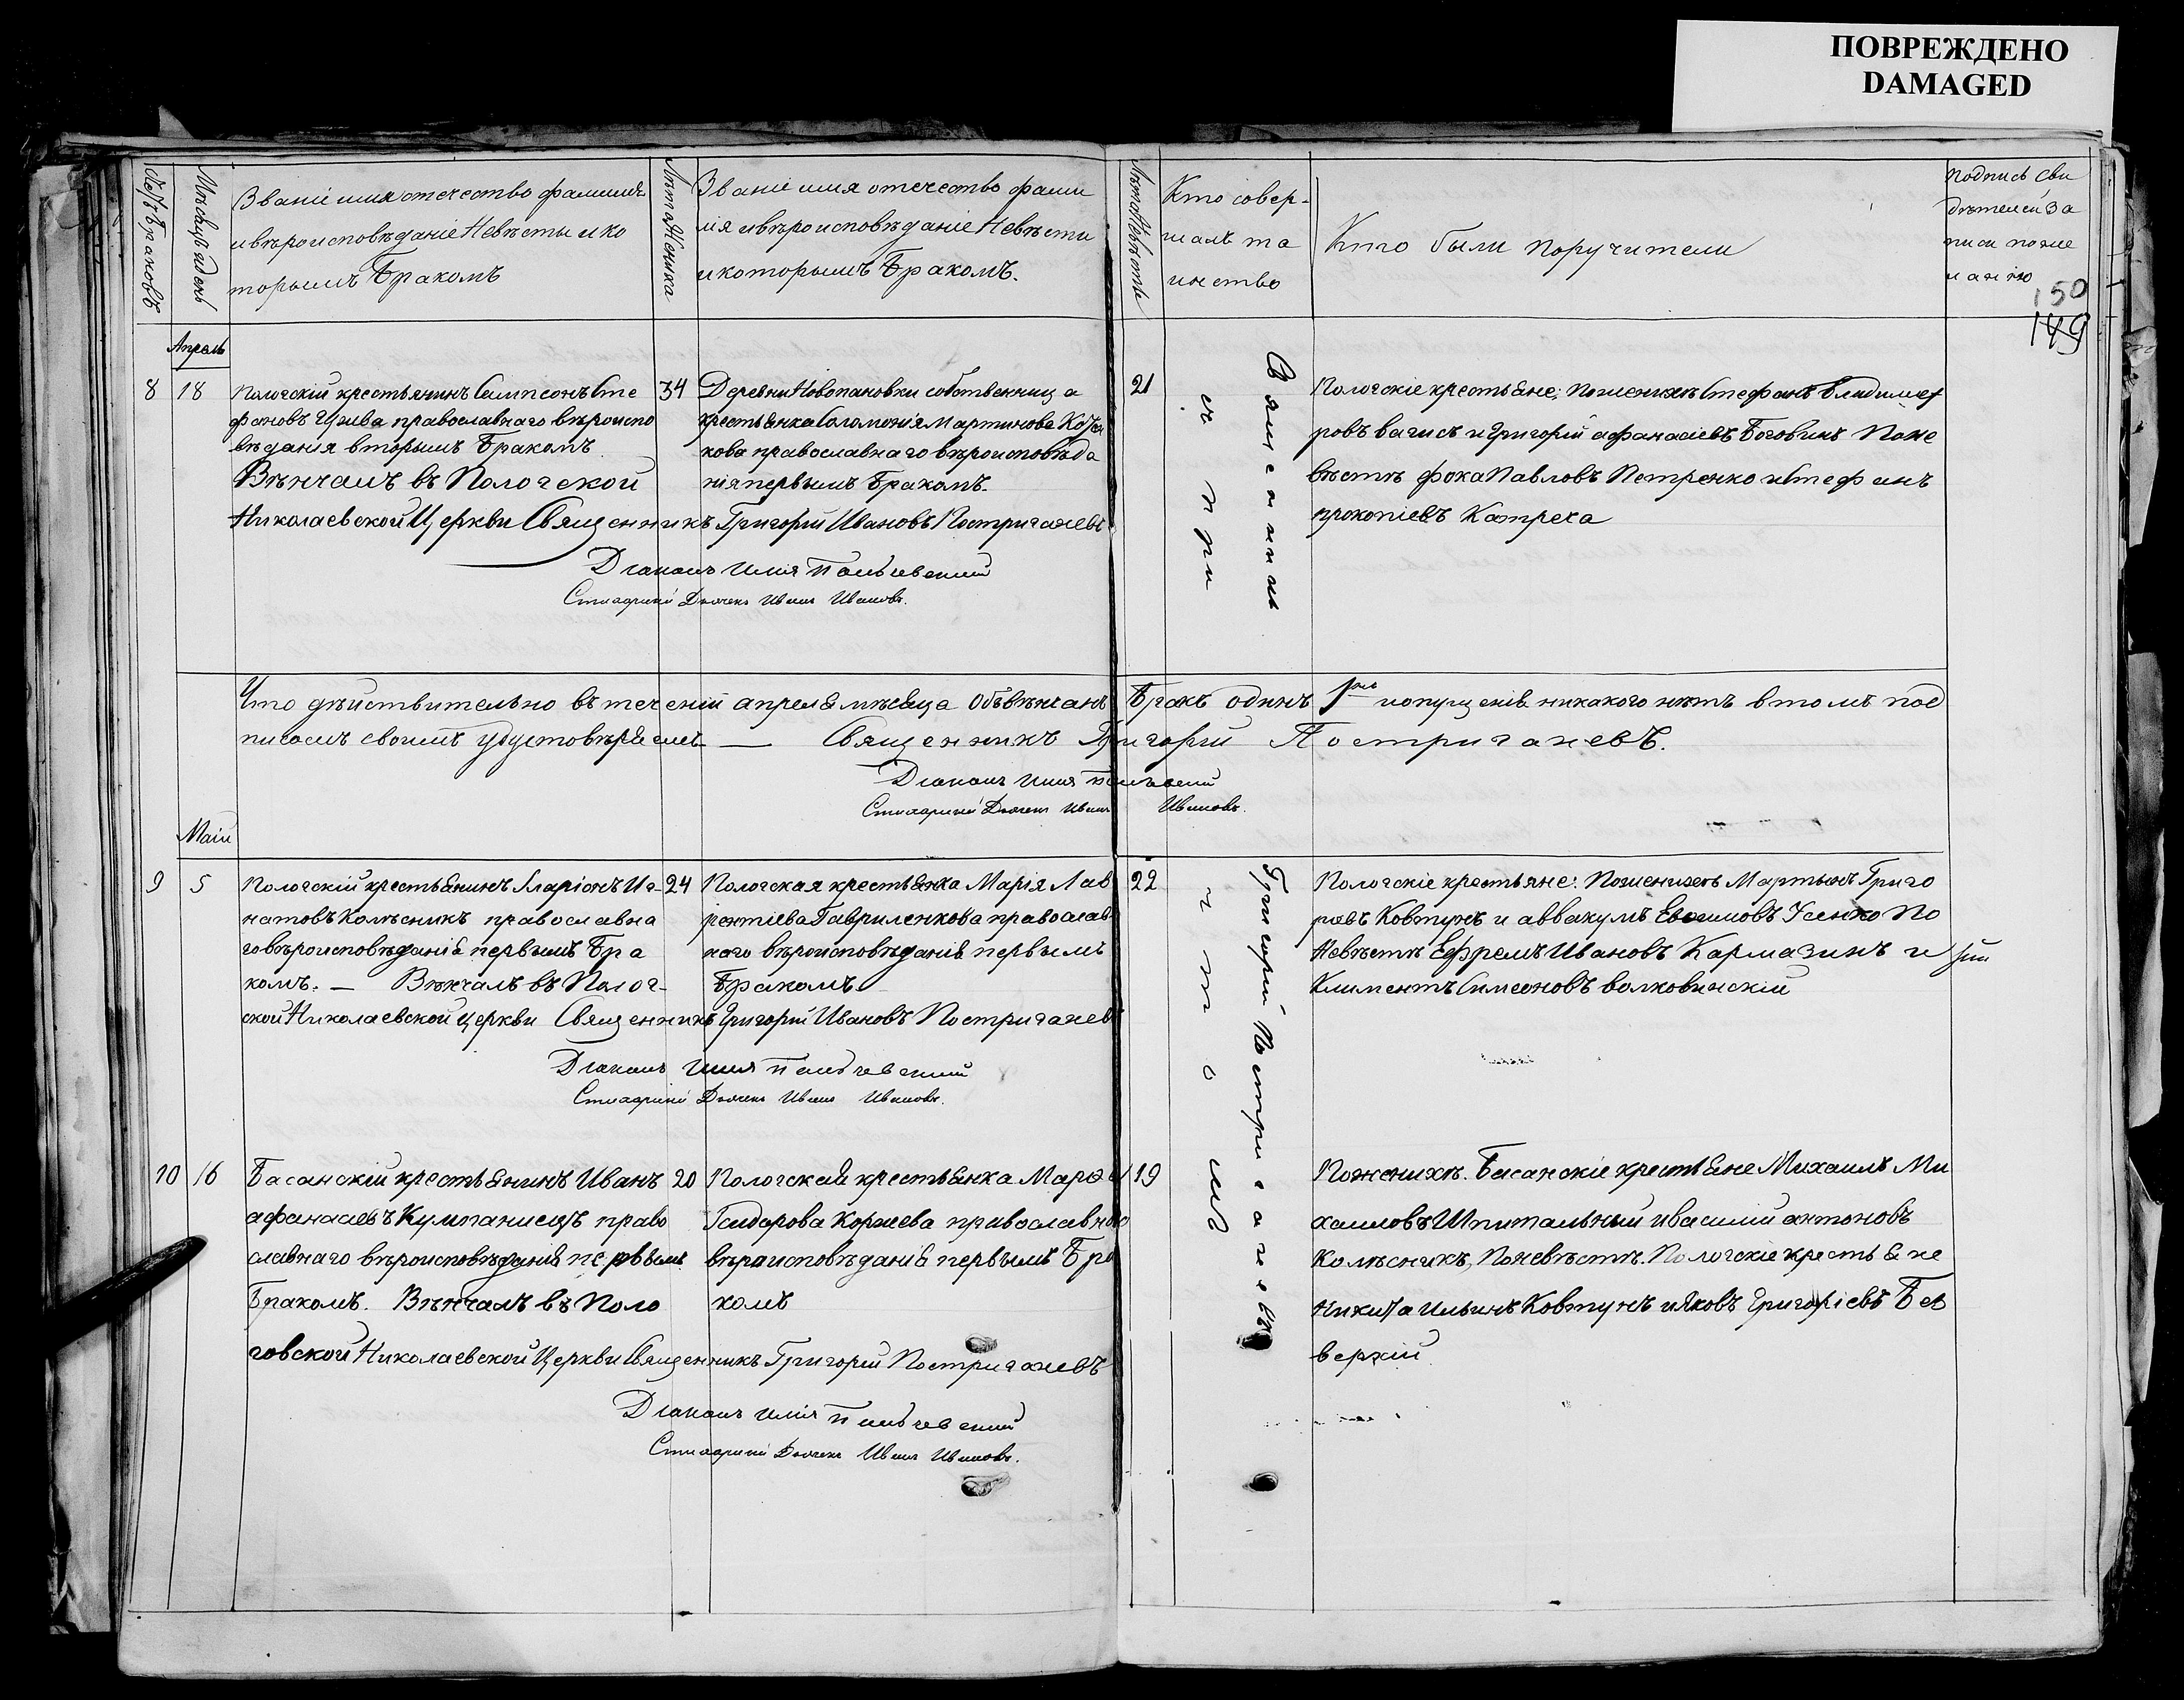 ПОВРЕЖДЕНО
DAMAGED
Мѣсяцъ и день
Званіе имя отечество фамилія
и вѣроисповѣданіе Невѣсты и ко
торымъ Бракомъ
Лѣта Жениха
Званіе имя отечество фами
лія и вѣроисповѣданіе Невѣсти
и которымъ Бракомъ.
Лѣта Невѣсты
Кто совер-
шалъ та
инство
Кто были поручители
подпись сви
дѣтелей за
писи по же
ланію
150
149
Апрель
8 18
Пологскій крестьянинъ Сампсонъ Сте
фановъ Цурива православнаго вѣроиспо
вѣданія вторымъ Бракомъ
Вѣнчалъ въ Пологской
Николаевской Церкви Священникъ Григорій Ивановъ Постригачевъ
34
Деревни Новопановки собственница
крестьянка Соломонія Мартинова
кова православнаго вѣроисповѣда
нія первымъ Бракомъ.
Діаконъ Илія
Стихарный Дьячекъ Иванъ Ивановъ.
21
Священникъ
Пологскіе крестьяне: По женихѣ Стефанъ Владиме
ровъ вагисъ и Григорій афанасіевъ Боговинъ По не
вѣсте фока Павловъ Петренко и Стефанъ
прокопіевъ Капреха
Что дѣйствительно въ теченіи апреля мѣсяца Обвѣнчанъ Бракъ одинъ 1 и опущенія никакого нѣтъ в томъ под
писомъ своимъ удустовѣряемъ — Священникъ Григорій Постригачевъ.
Діаконъ Илія
Стихарный Дьячекъ Иванъ Ивановъ.
Маій
9 5
Пологскій крестьянинъ Иларіонъ Иг-
натовъ Колѣсникъ православна
го вѣроисповѣданія первымъ Бра
комъ. — Вѣнчалъ въ Полог-
ской Николаевской церкви Священникъ Григорій Ивановъ Постригачевъ
24
Пологская крестьянка Марія Лав
рентіева Гавриленкова православ
наго вѣроисповѣданія первымъ
Бракомъ
Діаконъ Илія
Стихарный Дьячекъ Иванъ Ивановъ.
22
Григорій Постригачевъ
съ причтомъ
Пологскіе крестьяне: По женихѣ Мартынъ Григо
ровъ Ковтунъ и аввакумъ Евфимовъ Усенко По
Невѣсте Ефремъ Ивановъ Кармазинъ и
Климентъ Симеоновъ волковинскій
10 16
Басанскій крестьянинъ Иванъ
афанасіевъ Кумпаниецъ право
славнаго вѣроисповѣданія первымъ
Бракомъ. Вѣнчалъ въ Поло
говской Николаевской Церкви Священникъ Григорій Постригачевъ
20
Пологская крестьянка Марѳа
Гайдарова Коржева православнаго
вѣроисповѣданія первымъ Бра
комъ
Діаконъ Илія
Стихарный Дьячекъ Иванъ Ивановъ.
19
По женихѣ. Басанскіе крестьяне Михаилъ Ми
хаиловъ Шпитальный и василій антоновъ
Колѣсникъ, По невѣсте. Пологскіе крестьяне
Никита Ильинъ Ковтунъ и Яковъ Григоріевъ Без
верхій